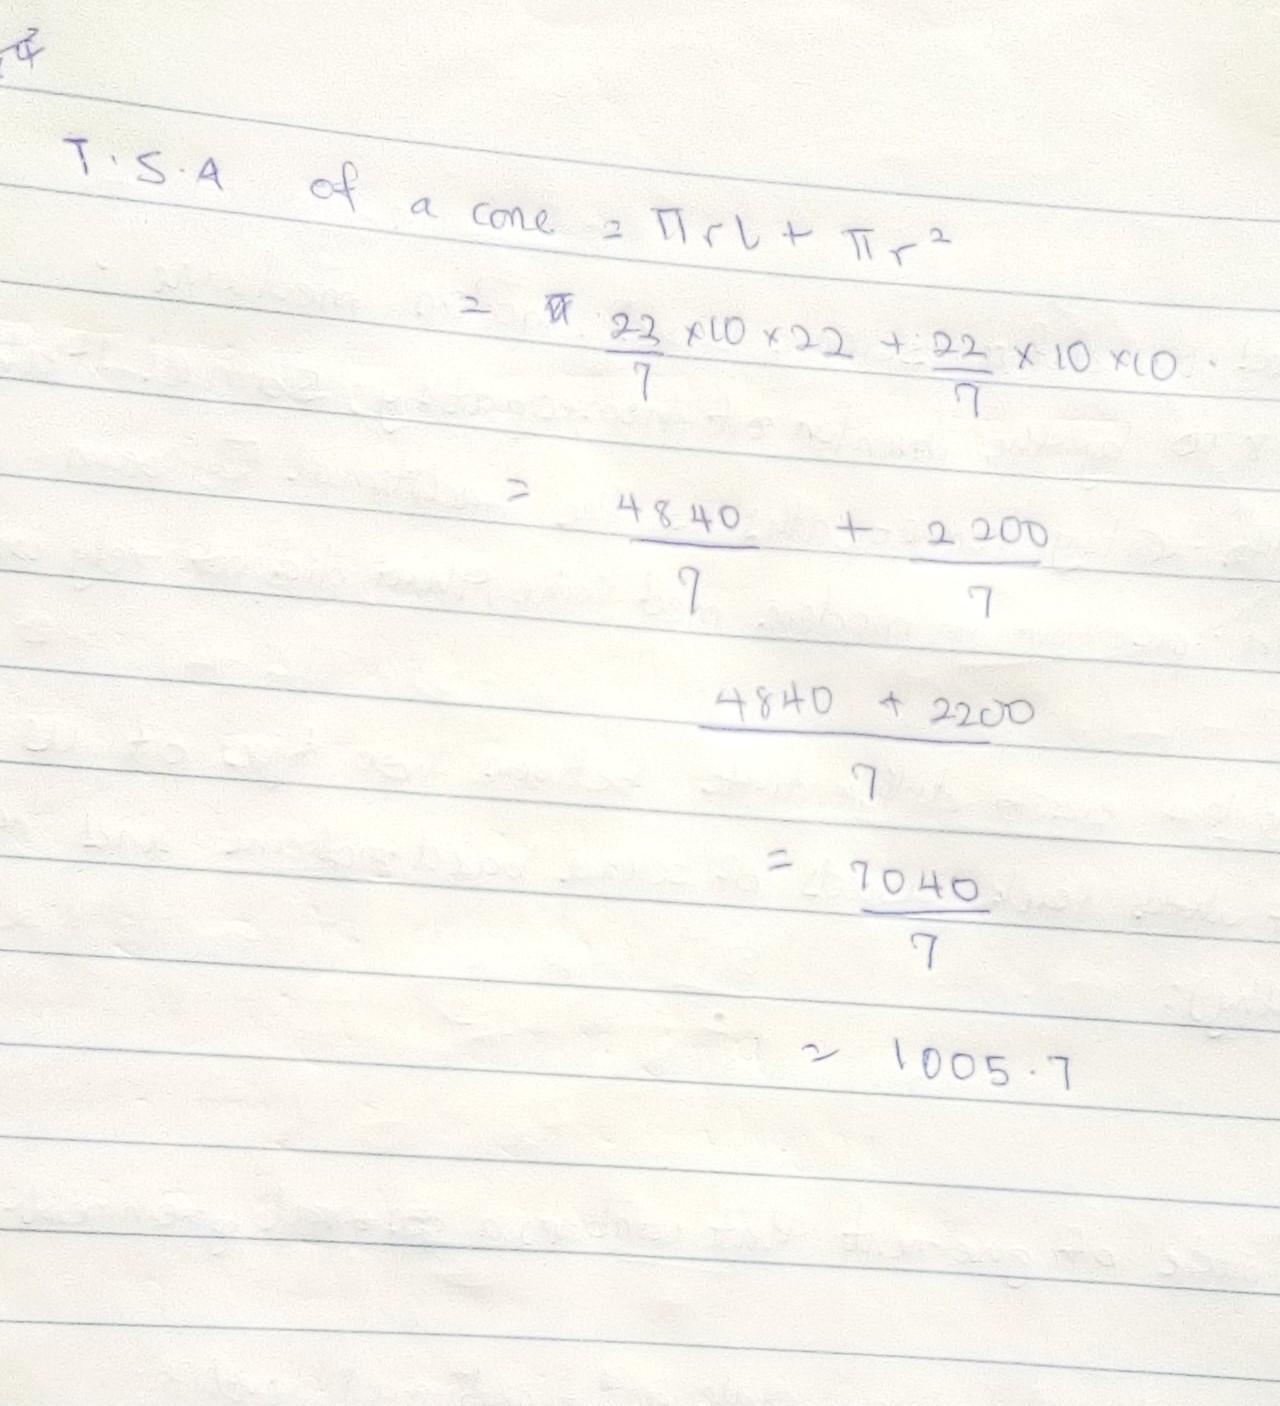 T.S.A of a cone = πrl + πr²
= 22/7 ×10 × 22 + 22/7 × 10 ×10.
= 4840/7 + 2200/7
4840 + 2200/7
= 7040/7
= 1005.7